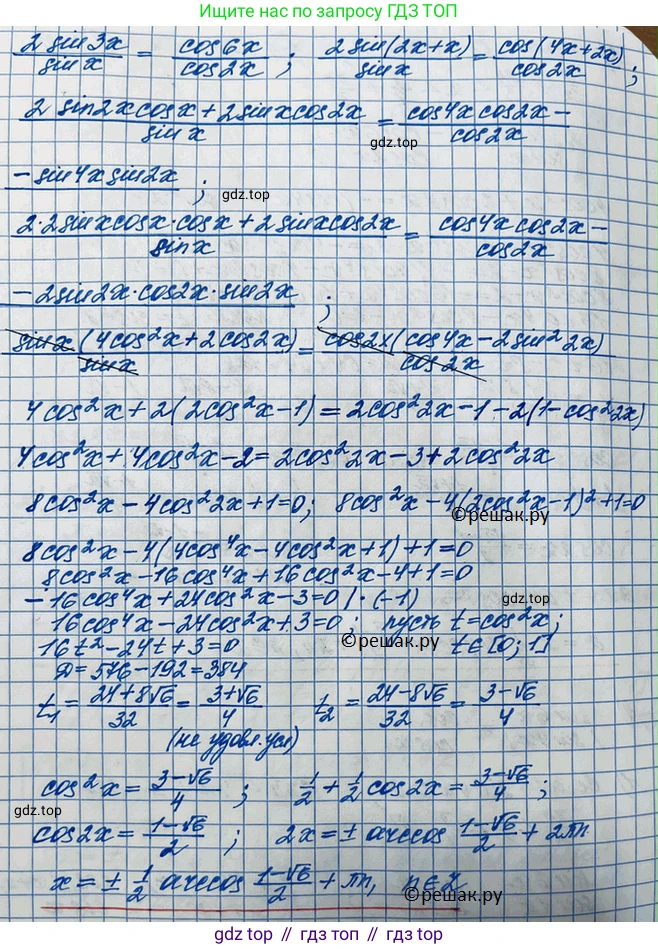 Ищите нас по запросу ГДЗ ТОП
2 sin3x / sin x = cos6x / cos2x ; 2 sin(2x+x) / sin x = cos(4x+2x) / cos2x ;
2 sin2x cosx + 2 sinx cos2x / sin x = cos4x cos2x − / cos2x
gdz.top
− sin4x sin2x ;
gdz.top
2·2 sinx cosx·cosx + 2 sinx cos2x / sin x = cos4x cos2x − / cos2x
− 2 sin2x·cos2x·sin2x ;
sin x (4cos²x + 2cos2x) / sin x = cos2x (cos4x − 2sin²2x) / cos2x
4cos²x + 2(2cos²x−1) = 2cos²2x − 1 − 2(1−cos²2x)
4cos²x + 4cos²x − 2 = 2cos²2x − 3 + 2cos²2x
8cos²x − 4cos²2x + 1 = 0; 8cos²x − 4(2cos²x−1)² + 1 = 0
©решак.ру
8cos²x − 4(4cos⁴x − 4cos²x + 1) + 1 = 0
8cos²x − 16cos⁴x + 16cos²x − 4 + 1 = 0
− 16cos⁴x + 24cos²x − 3 = 0 | · (−1)
16cos⁴x − 24cos²x + 3 = 0 ; пусть t = cos²x ;
16t² − 24t + 3 = 0 t ∈ [0; 1]
©решак.ру
D = 576 − 192 = 384
t₁ = 24+8√6 / 32 = 3+√6 / 4 t₂ = 24−8√6 / 32 = 3−√6 / 4
(не удовл. усл)
cos²x = 3−√6 / 4 ; 1/2 + 1/2 cos2x = 3−√6 / 4 ;
gdz.top
gdz.top
cos2x = 1−√6 / 2 ; 2x = ± arccos 1−√6 / 2 + 2πn
x = ± 1/2 arccos 1−√6 / 2 + πn, n ∈ Z
©решак.ру
gdz.top // гдз.топ // гдз.top